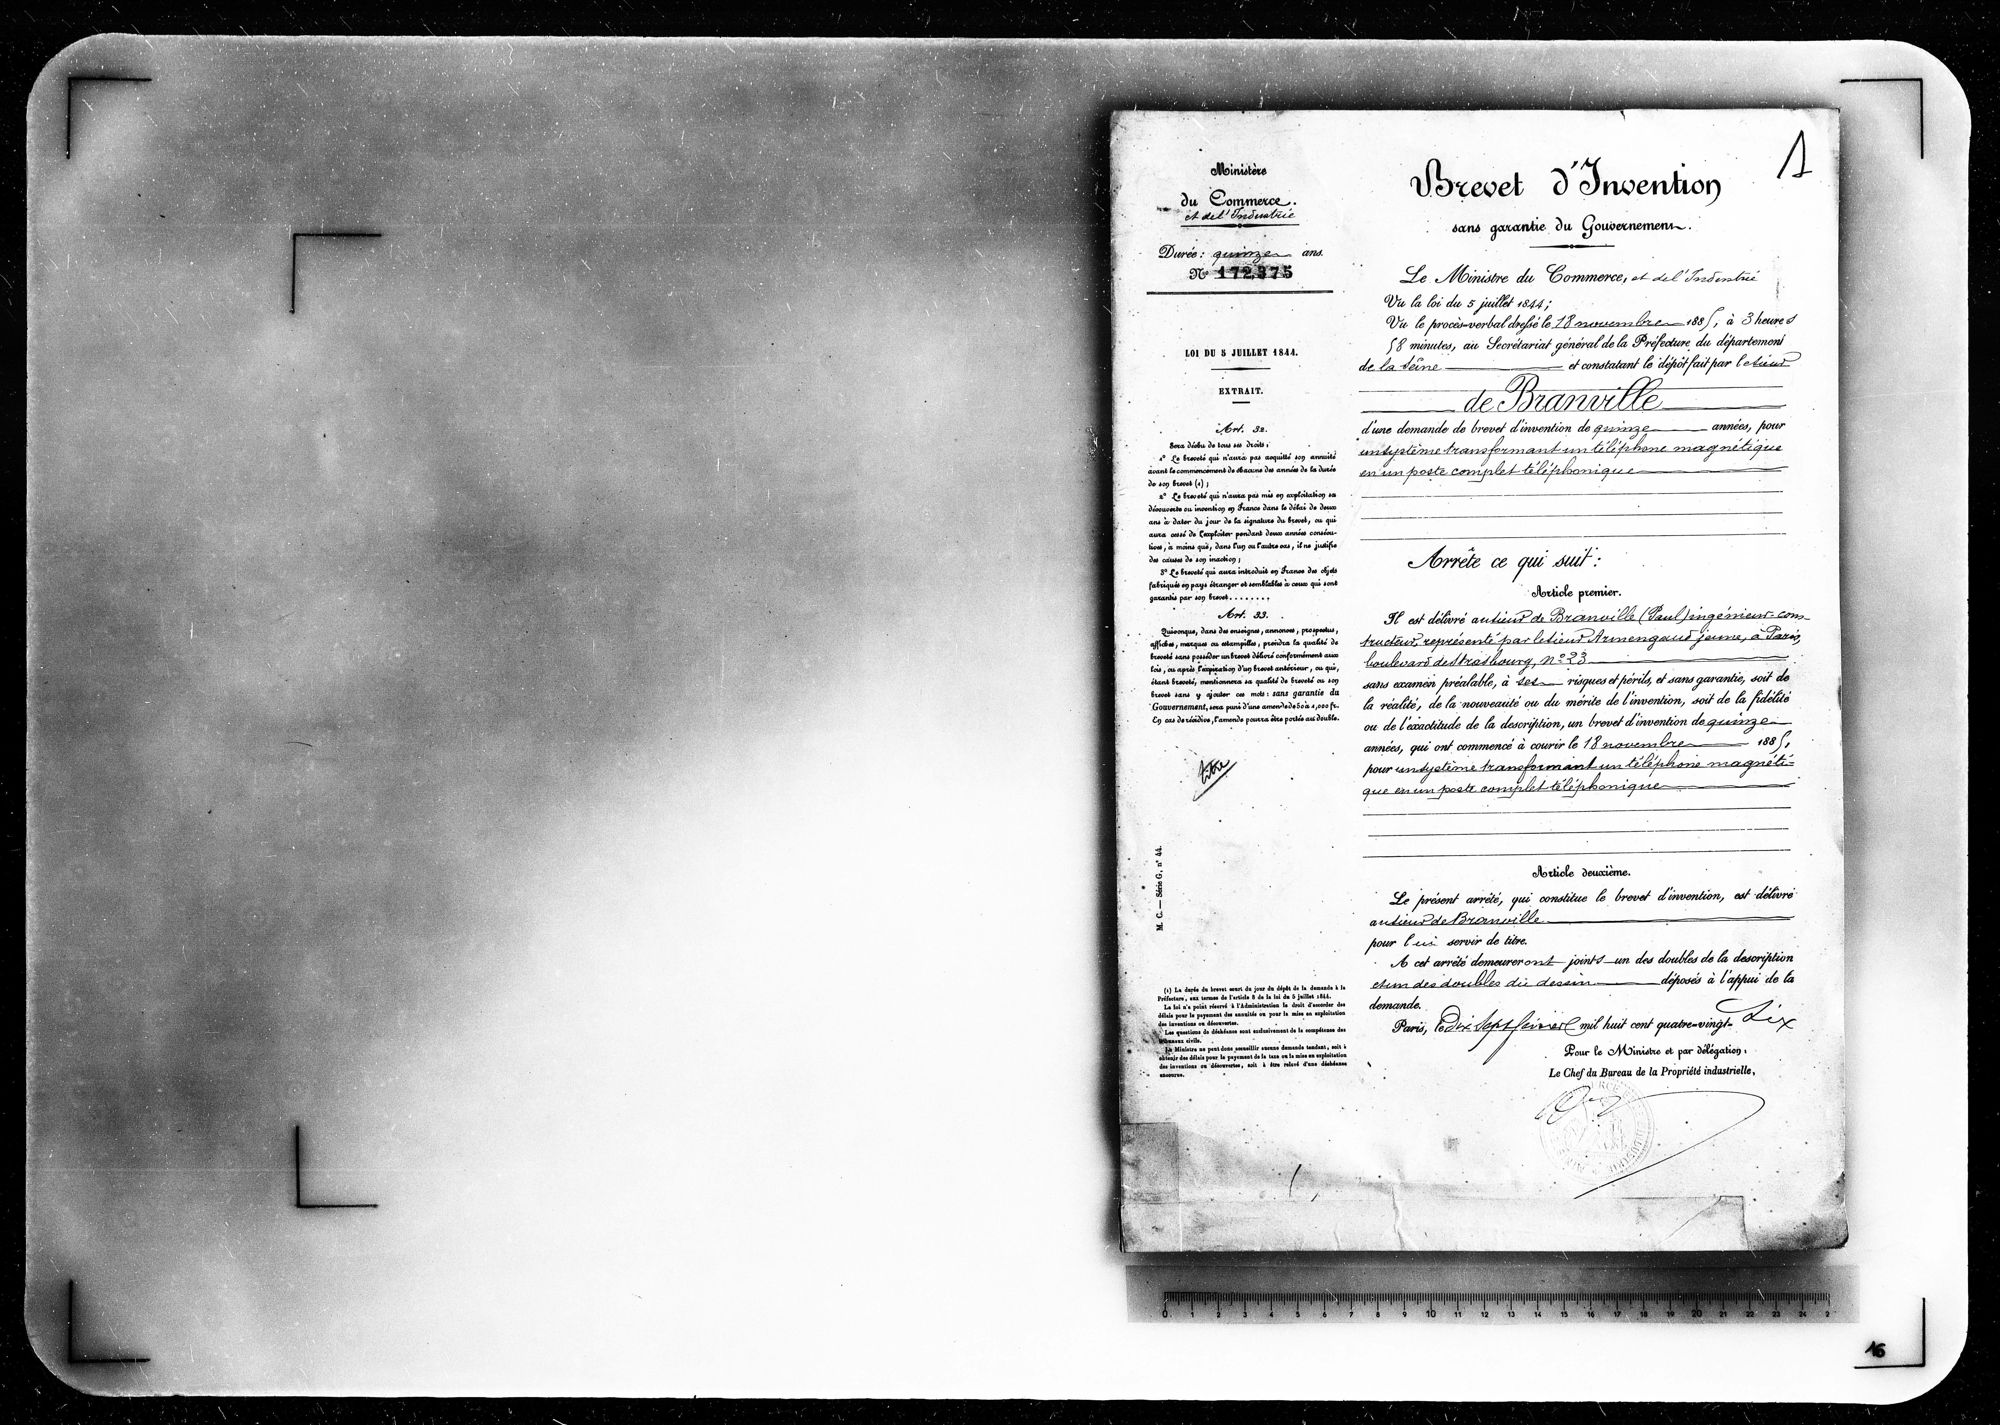 1
Ministère
du Commerce.
et de l'Industrie
Durée: quinze ans.
No 172375
LOI DU 5 JUILLET 1844.
EXTRAIT.
Art. 32.
Sera déchu de tous ses droits:
1° Le breveté qui n'aura pas acquitté son annuité
avant le commencement de chacune des années de la durée
de son brevet (1);
2° Le breveté qui n'aura pas mis en exploitation sa
découverte ou invention en France dans le délai de deux
ans à dater du jour de la signature du brevet, ou qui
aura cessé de l'exploiter pendant deux années consécu-
tives, à moins que, dans l'un ou l'autre cas, il ne justifie
des causes de son inaction;
3° Le breveté qui aura introduit en France des objets
fabriqués en pays étranger et semblables à ceux qui sont
garantis par son brevet........
Art. 33.
Quiconque, dans des enseignes, annonces, prospectus,
affiches, marques ou estampilles, prendra la qualité de
breveté sans posséder un brevet délivré conformément aux
lois, ou après l'expiration d'un brevet antérieur, ou qui,
étant breveté, mentionnera sa qualité de breveté ou son
brevet sans y ajouter ces mots: sans garantie du
Gouvernement, sera puni d'une amende de 50 à 1,000 fr.
En cas de récidive, l'amende pourra être portée au double.
titre
M. C. — Série G, n° 44.
(1) La durée du brevet court du jour du dépôt de la demande à la
Préfecture, aux termes de l'article 8 de la loi du 5 juillet 1844.
La loi n'a point réservé à l'Administration le droit d'accorder des
délais pour le payement des annuités ou pour la mise en exploitation
des inventions ou découvertes.
Les questions de déchéance sont exclusivement de la compétence des
tribunaux civils.
Le Ministre ne peut donc accueillir aucune demande tendant, soit à
obtenir des délais pour le payement de la taxe ou la mise en exploitation
des inventions ou découvertes, soit à être relevé d'une déchéance
encourue.
Brevet d'Invention
sans garantie du Gouvernement.
Le Ministre du Commerce, et de l'Industrie
Vu la loi du 5 juillet 1844;
Vu le procès-verbal dressé le 18 novembre 1885, à 3 heures
58 minutes, au Secrétariat général de la Préfecture du département
de la Seine et constatant le dépôt fait par le sieur
de Branville
d'une demande de brevet d'invention de quinze années, pour
un système transformant un téléphone magnétique
en un poste complet téléphonique
Arrête ce qui suit:
Article premier.
Il est délivré au sieur de Branville (Paul) ingénieur-cons-
tructeur, représenté par le sieur Armengaud jeune, à Paris,
boulevard de Strasbourg, n° 23
sans examen préalable, à ses risques et périls, et sans garantie, soit de
la réalité, de la nouveauté ou du mérite de l'invention, soit de la fidélité
ou de l'exactitude de la description, un brevet d'invention de quinze
années, qui ont commencé à courir le 18 novembre 1885,
pour un système transformant un téléphone magnéti-
que en un poste complet téléphonique
Article deuxième.
Le présent arrêté, qui constitue le brevet d'invention, est délivré
au sieur de Branville
pour lui servir de titre.
A cet arrêté demeureront joints un des doubles de la description
et un des doubles du dessin déposés à l'appui de la
demande.
Paris, le dix sept février mil huit cent quatre-vingt-six
Pour le Ministre et par délégation:
Le Chef du Bureau de la Propriété industrielle,
0 1 2 3 4 5 6 7 8 9 10 11 12 13 14 15 16 17 18 19 20 21 22 23 24 2
16